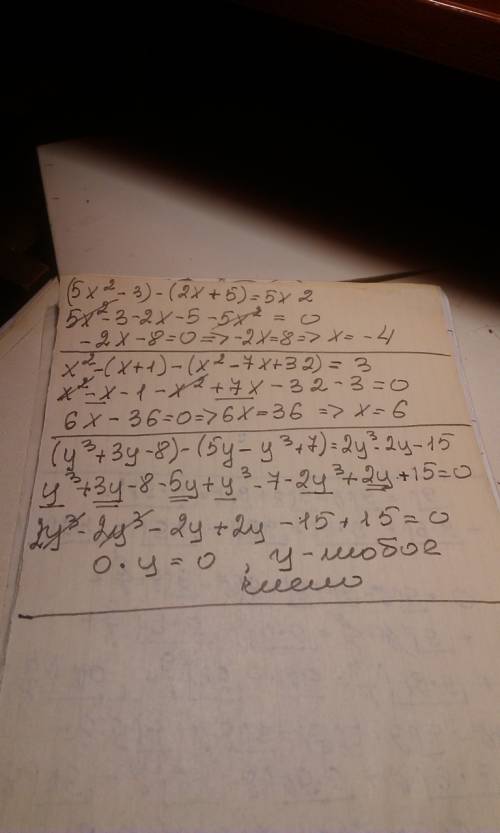 (5x² - 3) - (2x + 5) = 5x2
5x² - 3 - 2x - 5 - 5x² = 0
- 2x - 8 = 0 => -2x = 8 => x = - 4
x² - (x + 1) - (x² - 7x + 32) = 3
x² - x - 1 - x² + 7x - 32 - 3 = 0
6x - 36 = 0 => 6x = 36 => x = 6
(y³ + 3y - 8) - (5y - y³ + 7) = 2y³ - 2y - 15
y³ + 3y - 8 - 5y + y³ - 7 - 2y³ + 2y + 15 = 0
2y³ - 2y³ - 2y + 2y - 15 + 15 = 0
0 · y = 0 , y - любое
число